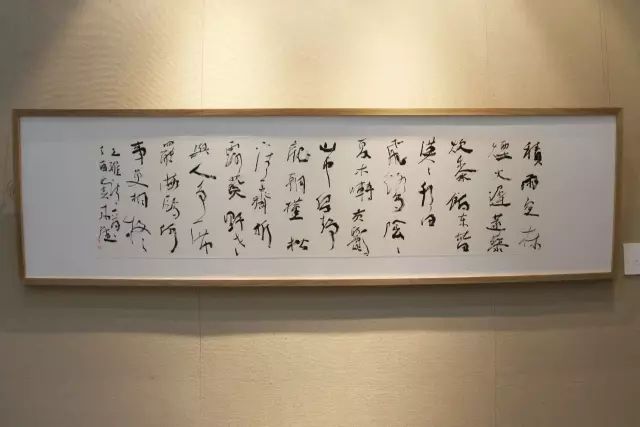 積雨空林
煙火遲蒸藜
炊黍餉東菑
漠〻水田
飛白鷺陰〻
夏木囀黃鸝
山中習靜
觀朝槿松
下清齋折
露葵野老
與人爭席
罷海鷗何
事更相疑
王維詩一首